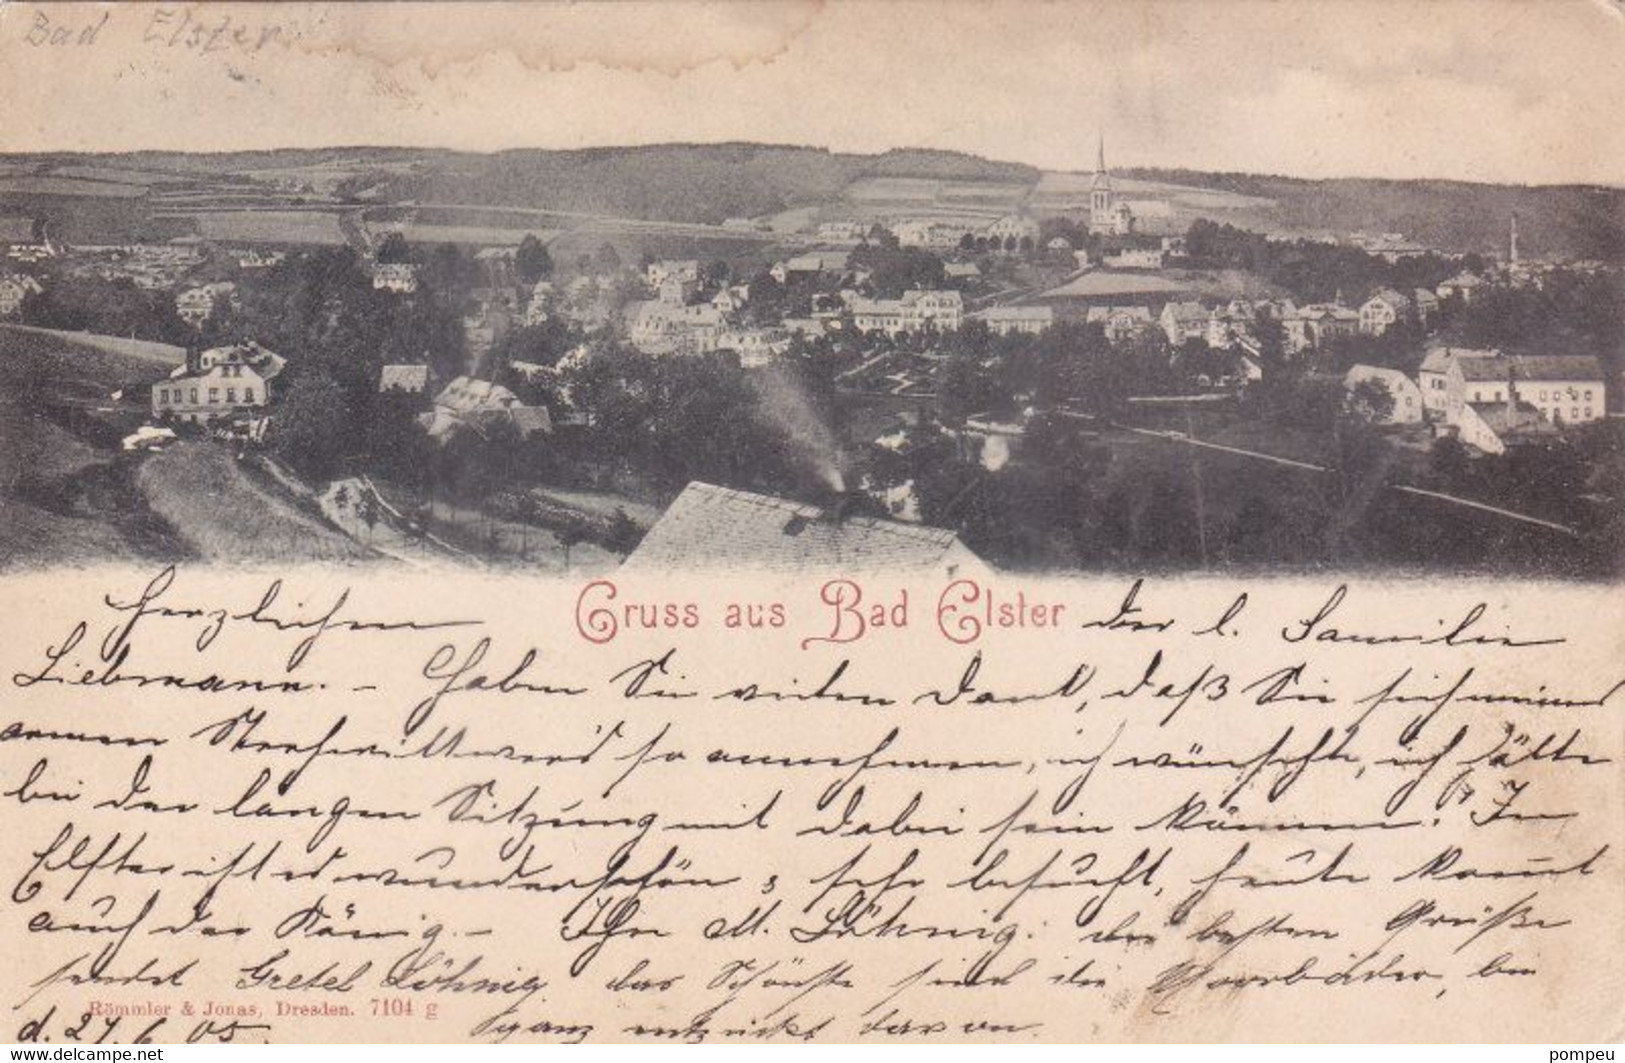 Bad Elster
Herzlichen Gruss aus Bad Elster der l. Familie
Liebmann. - Haben Sie vielen Dank, daß Sie sich meines
armen so annehmen, ich wünschte, ich hätte
bei der langen Sitzung mit dabei sein können. In
Elster ist es wunderschön & sehr besucht, heute kommt
auch der König. - Ihr M. Löhnig. die besten Grüße
sendet Gretel Löhnig das Schönste sind die Moorbäder, bin
Römmler & Jonas, Dresden. 7104 g
d. 27. 6. 05. ganz entzückt davon.
www.delcampe.net
pompeu